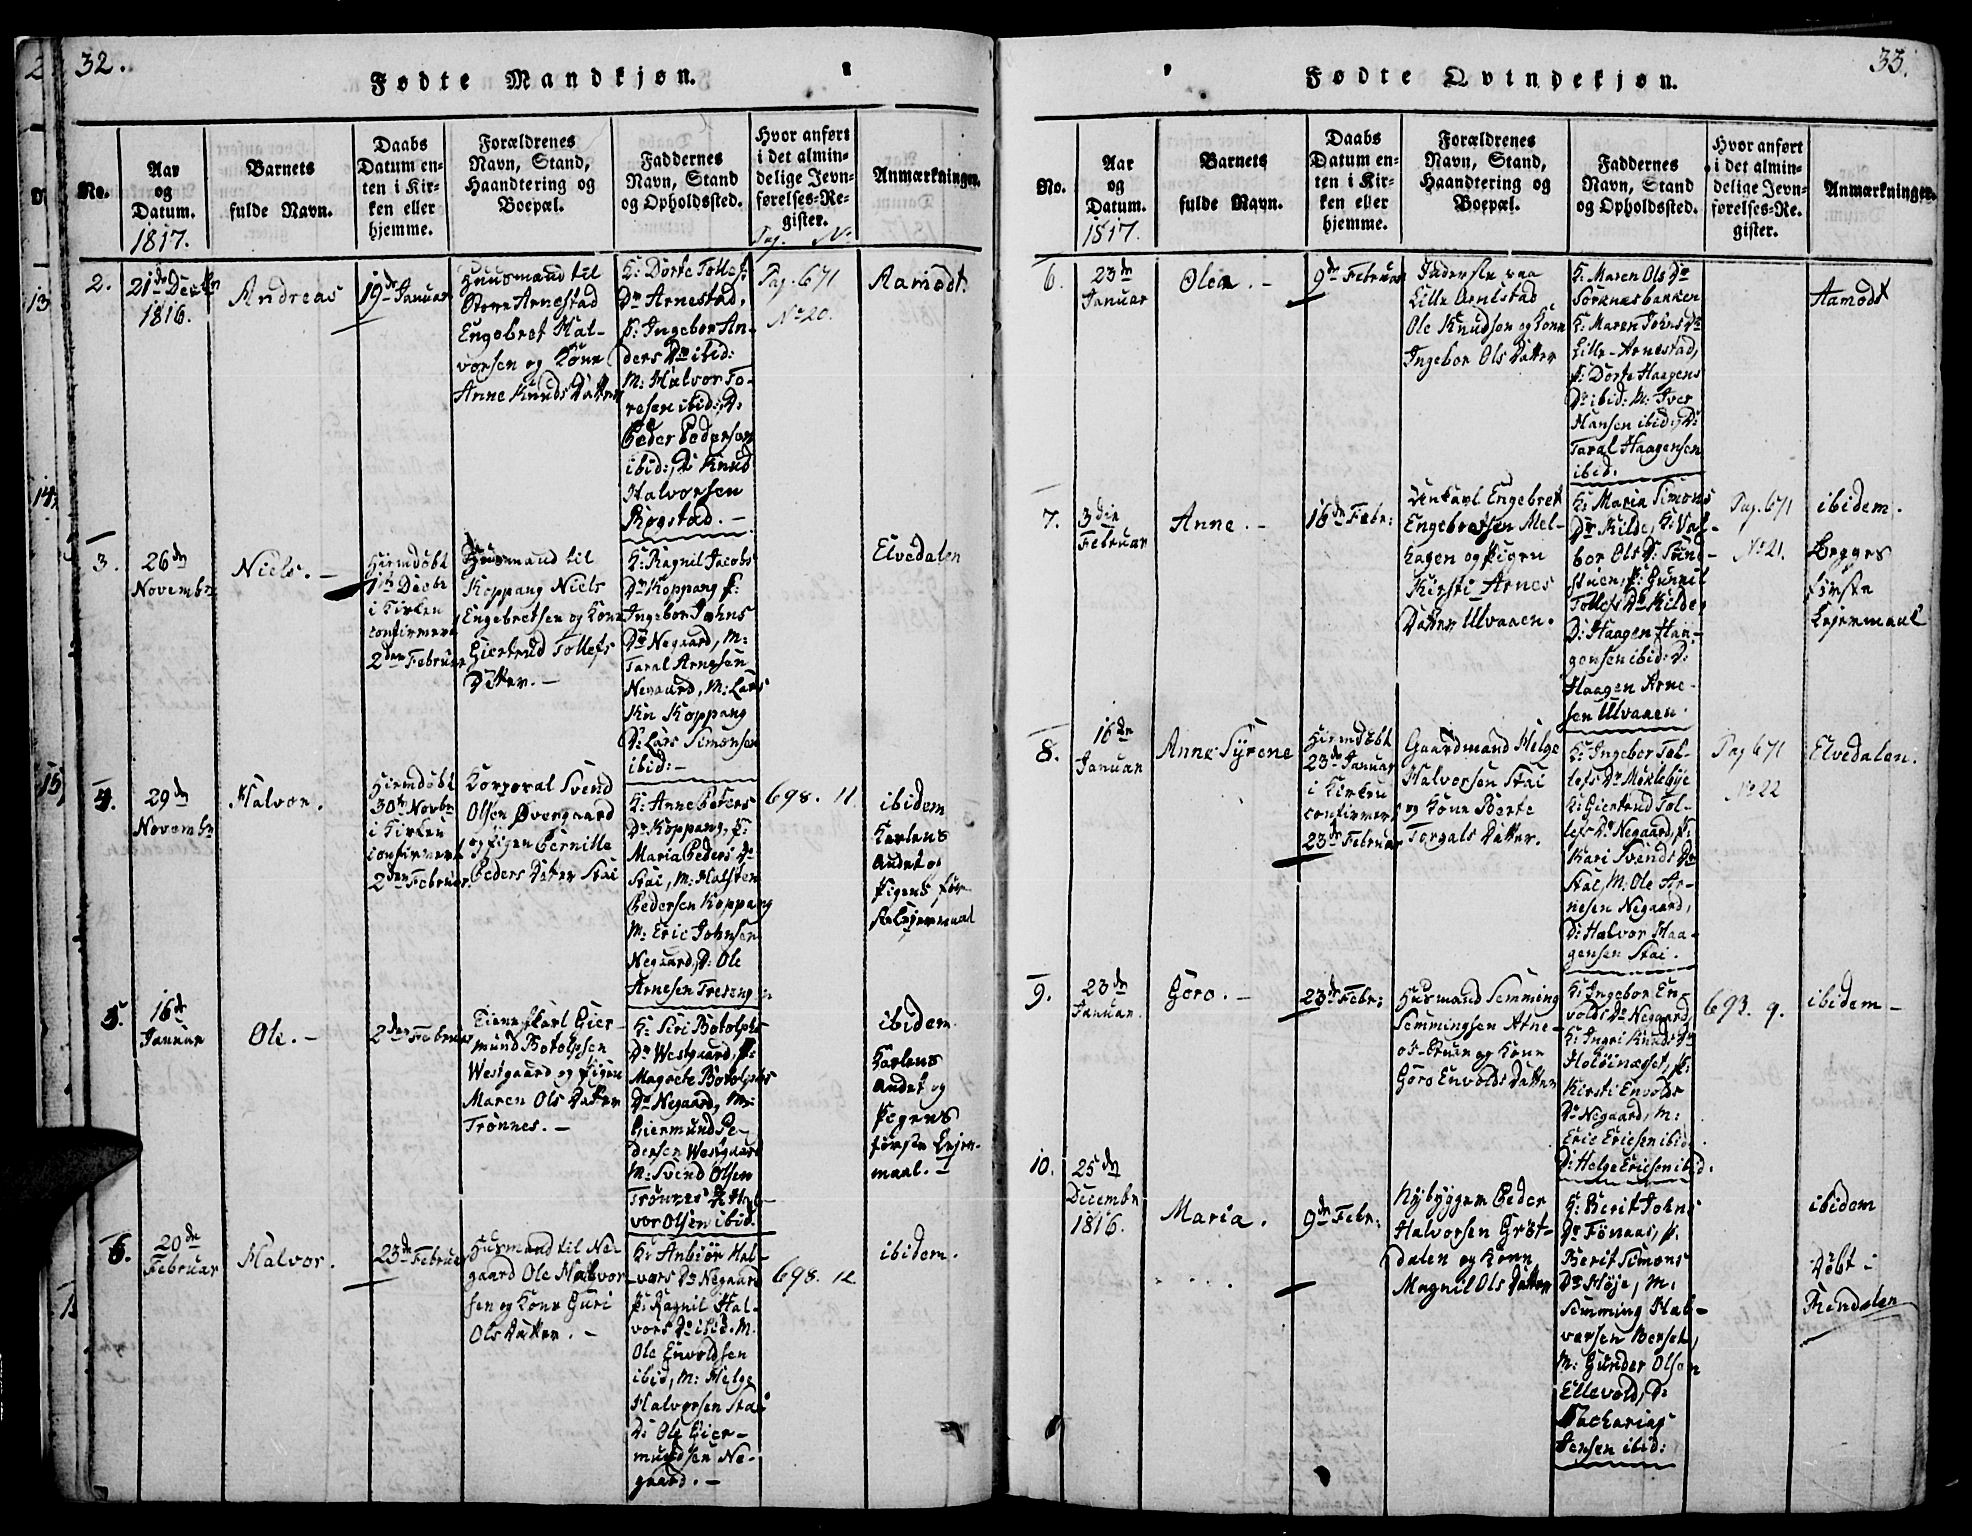 32.
Fødte Mandkjøn.
No.
Aar
og
Datum.
1817.
Barnets
fulde Navn.
Daabs
Datum en-
ten i Kir-
ken eller
hjemme.
Forældrenes
Navn, Stand,
Haandtering og
Boepæl.
Faddernes
Navn, Stand
og Opholdssted.
Hvor anført
i det almin-
delige Jevn-
førelses-Re-
gister.
Pag. No
Anmærkninger.
2.
21de Decbr
1816.
Andreas
19de Januar
Huusmand til
Store Arnestad
Engebret Hal-
vorsen og Kone
Anne Knuds Datter
K: Dorte Tollefs
Dr Arnestad,
P: Ingebor An-
ders Dr ibid:
M: Halvor To-
resen ibid:, D:
Peder Pedersen
ibid:, D: Knud
Halvorsen
Rogstad. -
Pag. 671
No 20.
Aamodt.
3.
26de
Novembr
Niels. -
Hiemdøbt
1ste Decbr
i Kirken
confirmert
2den Februar
Huusmand til
Koppang Niels
Engebretsen og Kone
Giertrud Tollefs
Datter. -
K: Ragnil Jacobs
Dr Koppang P:
Ingebor Johns
Dr Negaard, M:
Taral Arnesen
Negaard, M: Lars
Koppang
D: Lars Simonsen
ibid: -
Elvedalen
4.
29de
Novembr
Halvor.
Hiemdøbt
30te Novbr
i Kirken
confirmert
2den Februar.
Korporal Svend
Olsen Øvergaard
og Pigen Pernille
Peders Datter Stai
K: Anne Peders
Dr Koppang, P:
Maria Peders Dr
Stai, M: Halsten
Pedersen Koppang
M: Eric Johnsen
Negaard, D: Ole
Arnesen Treseng
698. 11
ibidem
Karlens
Andet og
Pigens før-
ste Leiermaal
5.
16de
Januar
Ole. -
2den Februar
Tienestkarl Gier-
mund Botolphsen
Westgaard og Pigen
Maren Ols Datter
Trønnes. -
K: Siri Botolphs
Dr Westgaard, P:
Magrete Botolphs
Dr Negaard, M:
Giermund Pe-
dersen Westgaard
M: Svend Olsen
Trønnes D: Hal-
vor Olsen ibid.
ibidem.
Karlens
Andet og
Pigens
første Leier-
maal. -
6.
20de
Februar
Halvor.
23de Februar
Husmand til Ne-
gaard Ole Halvor-
sen og Kone Guri
Ols Datter. -
K: Anbiør Hal-
vors Dr Negaard
P: Ragnil Hal-
vors Dr ibid. M.
Ole Envoldsen
ibid, M: Helge
Halvorsen Stai
D: Ole Gier-
mundsen Ne-
gaard. -
698. 12
ibidem.
33.
Fødte Qvindekjøn.
No.
Aar
og
Datum.
1817.
Barnets
fulde Navn.
Daabs
Datum en-
ten i Kir-
ken eller
hjemme.
Forældrenes
Navn, Stand,
Haandtering og
Boepæl.
Faddernes
Navn, Stand
og Opholdssted.
Hvor anført
i det almin-
delige Jevn-
førelses-Re-
gister.
Anmærkninger.
6.
23de
Januar
Olea. -
9de Februar
Inderste paa
Lille Arnestad
Ole Knudsen og Kone
Ingebor Ols Datter
K: Maren Ols Dr
Sorknæsbakken
K: Maren Johns Dr
Lille-Arnestad,
P: Dorte Haagens
Dr ibid: M: Iver
Hansen ibid, D:
Taral Haagensen
ibid.
Aamodt
7.
3die
Februar
Anne. -
16de Febr:
Unkarl Engebret
Engebretsen Mel-
hagen og Pigen
Kirsti Arnes
Datter Ulvaaen.
K: Maria Simons
Dr Kilde, K: Val-
bor Ols Dr Sund-
stuen, P: Gunnil
Tollefs Dr Kilde,
D: Haagen Haa-
gensen ibid: D:
Haagen Arne-
sen Ulvaaen.
Pag. 671
No 21.
ibidem.
Begges
første
Leiermaal
8.
16de
Januar
Anne Syrene
Hiemdøbt
23de Januar
i Kirken
confirmert
23de Februar
Gaardmand Helge
Halvorsen Stai
og Kone Berte
Torgals Datter.
K: Ingebor Tol-
lefs Dr Møklebye
K: Giertrud Tol-
lefs Dr Negaard, P:
Kari Svends Dr
Stai, M: Ole Ar-
nesen Negaard,
D: Halvor Haa-
gensen Stai.
Pag 671
No 22
Elvedalen.
9.
23de
Januar
Goro. -
23de Febr:
Husmand Semming
Semmingsen Atne-
os-Bruen og Kone
Goro Envolds Datter
K: Ingebor En-
volds Dr Negaard
K: Ingri Knuds Dr
Holøinæsset, P:
Kirsti Envolds
Dr Negaard, M:
Eric Ericsen ibid.
D: Helge Ericsen ibid.
693. 9.
ibidem -
10.
25de
Decembr
1816.
Maria.
9de Febr:
Nybyggern Peder
Halvorsen Grøt-
dalen og Kone
Magnil Ols Datter
K: Berit Johns
Dr Fonaas, P:
Berit Simons
Dr Høje, M:
Semming Hal-
vorsen Berset,
M: Gunder Olsen
Ellevold, D:
Zacharias
Jensen ibid:
ibidem
Døbt i
Rendalen